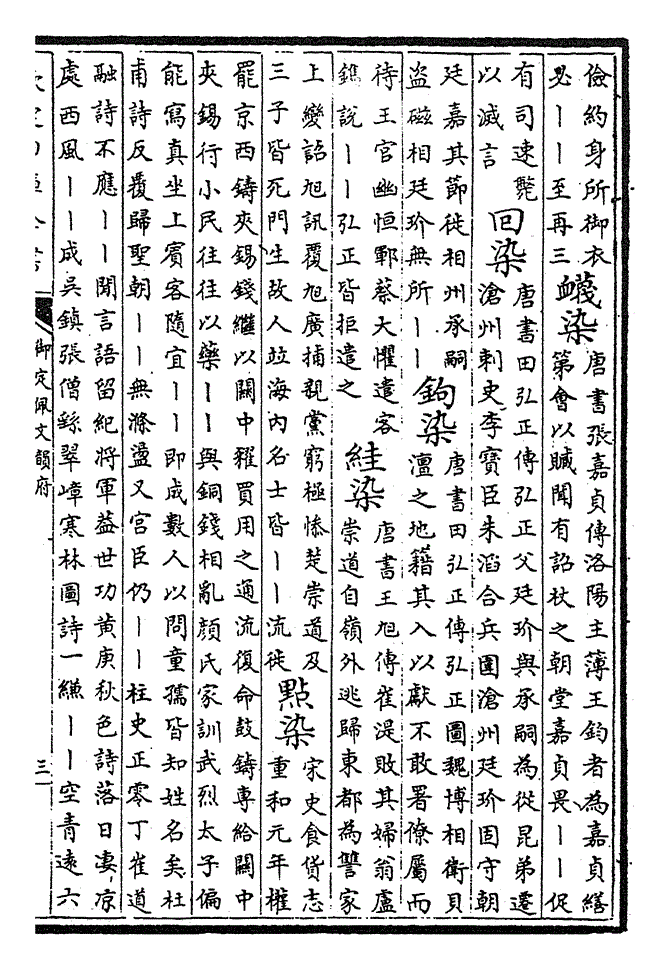 儉約身所御衣
必——至再三
衊染
唐書張嘉貞傳洛陽主簿王鈞者為嘉貞繕
第會以贓聞有詔杖之朝堂嘉貞畏——促
有司速斃
以滅言
回染
唐書田弘正傳弘正父廷玠與承嗣為從昆弟遷
滄州刺史李寶臣朱滔合兵圍滄州廷玠固守朝
廷嘉其節徙相州承嗣
盜磁相廷玠無所——
鉤染
唐書田弘正傳弘正圖魏博相衛貝
澶之地籍其入以獻不敢署僚屬而
待王官幽恒鄆蔡大懼遣客
鐫說——弘正皆拒遣之
絓染
唐書王旭傳崔湜敗其婦翁盧
崇道自嶺外逃歸東都為讐家
上變詔旭訊覆旭廣捕親黨窮極慘楚崇道及
三子皆死門生故人竝海內名士皆——流徙
點染
宋史食貨志
重和元年權
罷京西鑄夾錫錢繼以關中糴買用之通流復命鼓鑄專給關中
夾錫行小民往往以藥——與銅錢相亂顏氏家訓武烈太子偏
能寫真坐上賓客隨宜——即成數人以問童孺皆知姓名矣杜
甫詩反覆歸聖朝——無滌盪又宮臣仍——柱史正零丁崔道
融詩不應——聞言語留紀將軍葢世功黄庚秋色詩落日凄涼
處西風——成吳鎮張僧繇翠嶂寒林圖詩一縑——空青遠六
欽定四庫全書
御定佩文韻府
三